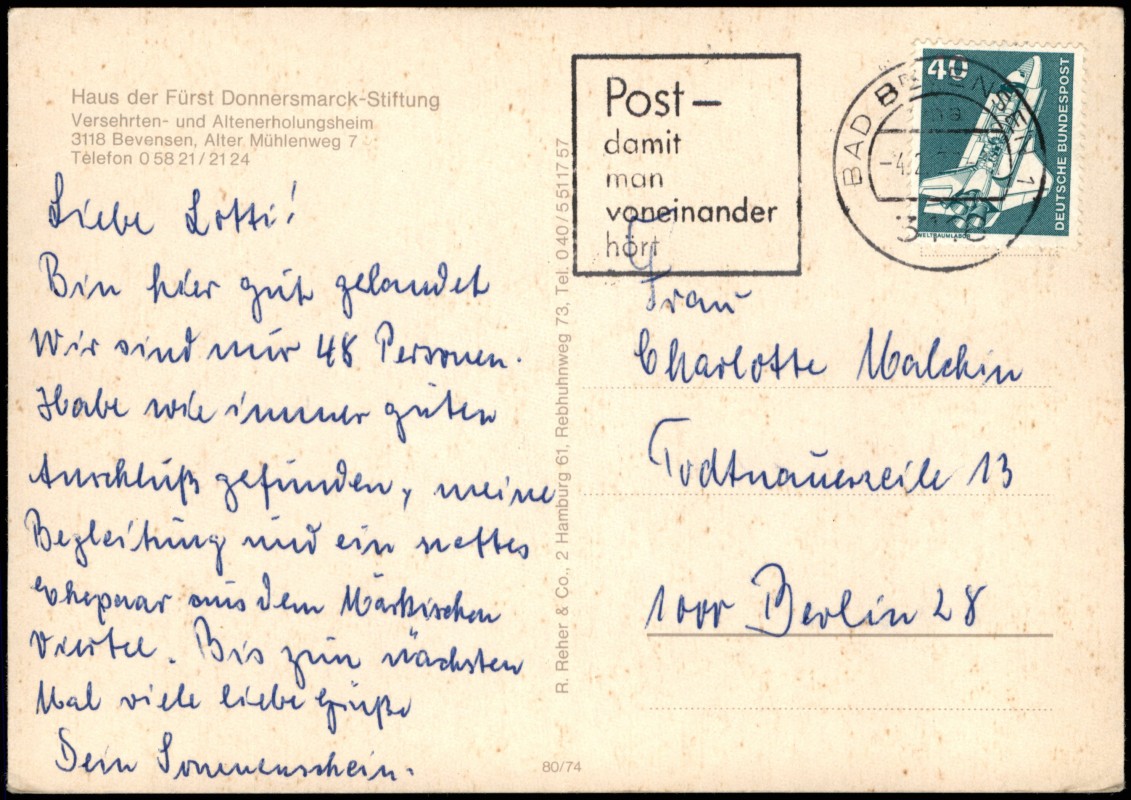 Haus der Fürst Donnersmarck-Stiftung
Versehrten- und Altenerholungsheim
3118 Bevensen, Alter Mühlenweg 7
Telefon 0 58 21 / 21 24
Liebe Lotti!
Bin hier gut gelandet
Wir sind nur 48 Personen.
Habe wie immer guten
Anschluß gefunden, meine
Begleitung und ein nettes
Ehepaar aus dem Märkischen
Viertel. Bis zum nächsten
Mal viele liebe Grüße
Dein Sonnenschein.
R. Reher & Co., 2 Hamburg 61, Rebhuhnweg 73, Tel. 0 40 / 5 51 17 57
80/74
Post –
damit
man
voneinander
hört
BAD BEVENSEN 1
3118
40
DEUTSCHE BUNDESPOST
WELTRAUMLABOR
Frau
Charlotte Malchin
Todtnauerzeile 13
1000 Berlin 28